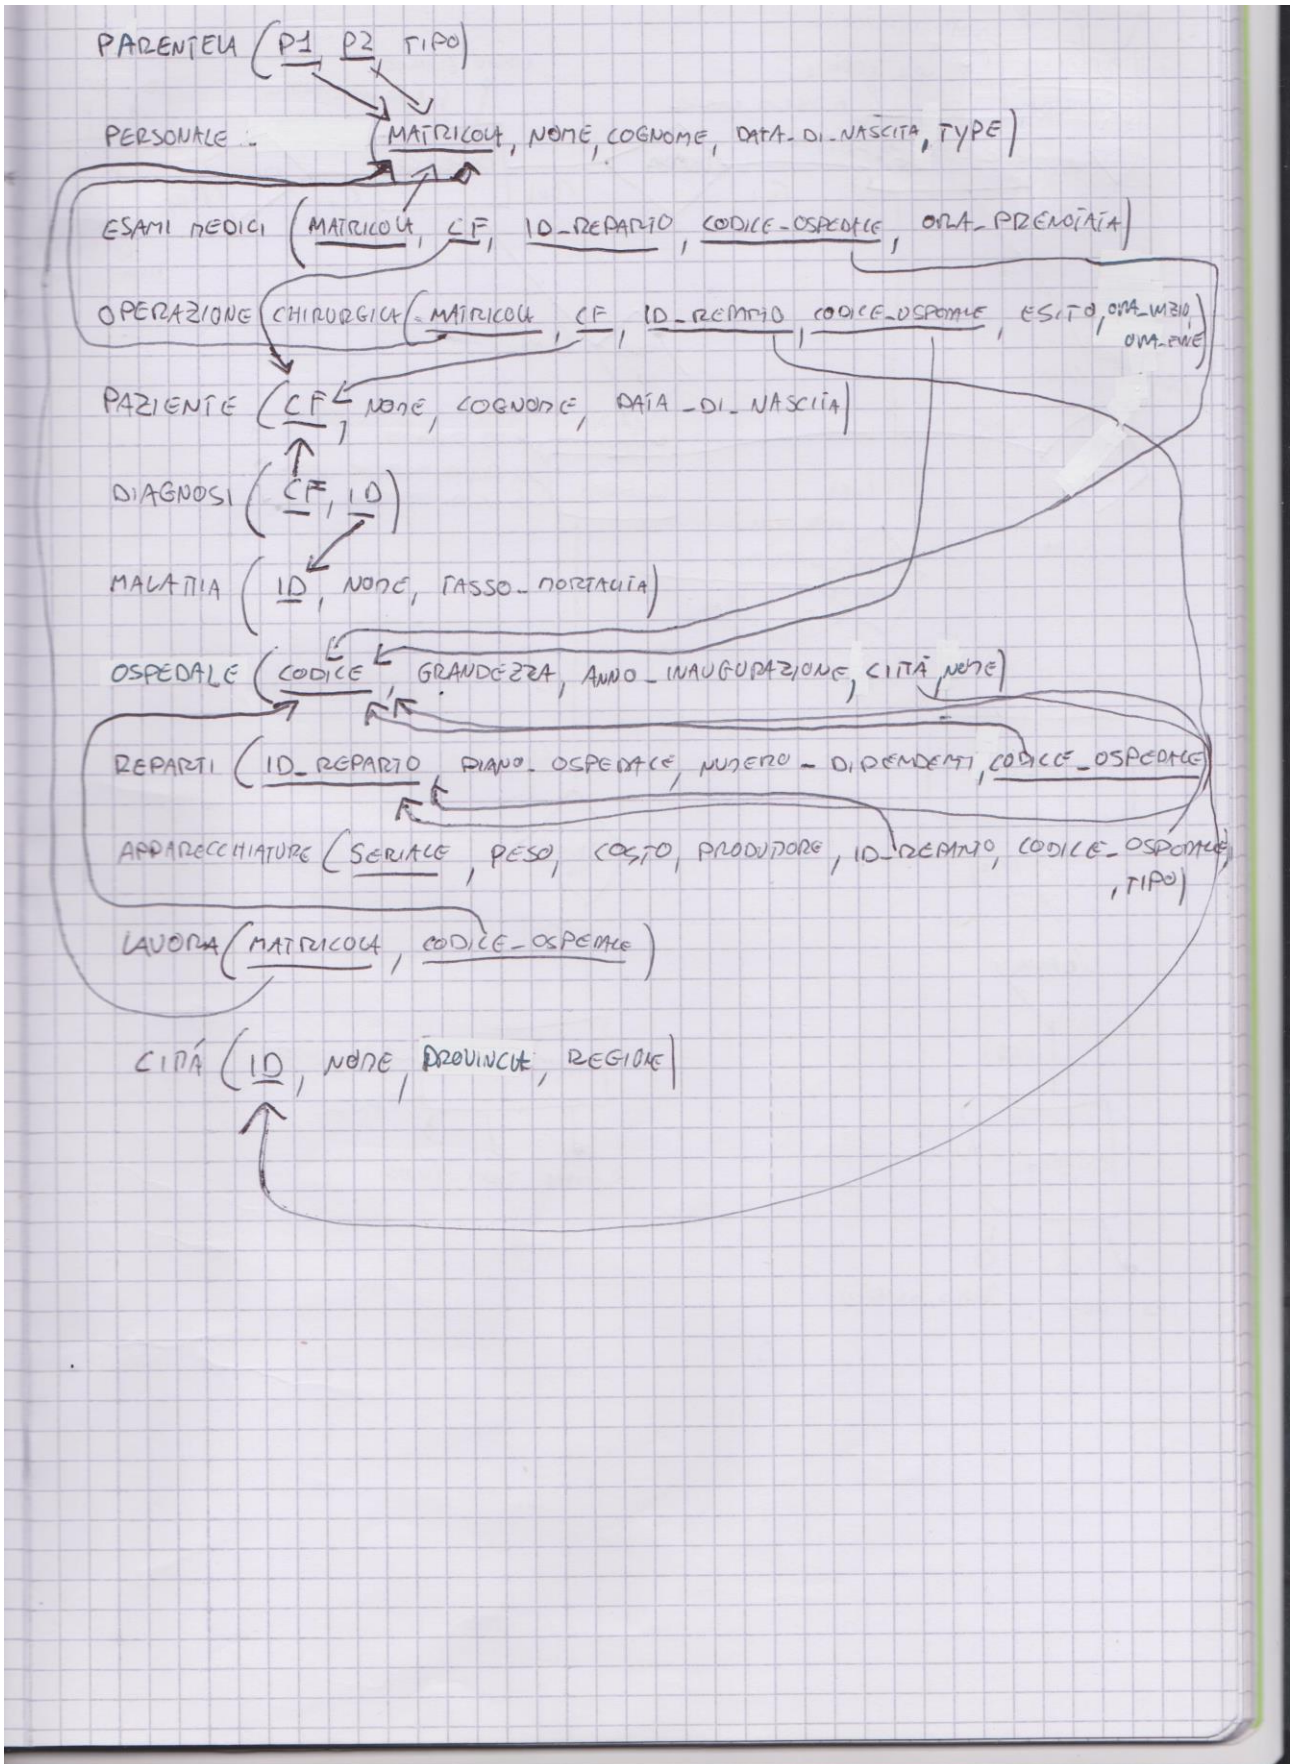 PARENTELA (P1, P2, TIPO)
PERSONALE (MATRICOLA, NOME, COGNOME, DATA_DI_NASCITA, TYPE)
ESAMI MEDICI (MATRICOLA, CF, ID_REPARTO, CODICE_OSPEDALE, ORA_PRENOTATA)
OPERAZIONE CHIRURGICA (MATRICOLA, CF, ID_REPARTO, CODICE_OSPEDALE, ESITO, ORA_INIZIO,
ORA_FINE)
PAZIENTE (CF, NOME, COGNOME, DATA_DI_NASCITA)
DIAGNOSI (CF, ID)
MALATTIA (ID, NOME, TASSO_MORTALITA)
OSPEDALE (CODICE, GRANDEZZA, ANNO_INAUGURAZIONE, CITTÁ, NOME)
REPARTI (ID_REPARTO, PIANO_OSPEDALE, NUMERO_DIPENDENTI, CODICE_OSPEDALE)
APPARECCHIATURE (SERIALE, PESO, COSTO, PRODUTTORE, ID_REPARTO, CODICE_OSPEDALE
, TIPO)
LAVORA (MATRICOLA, CODICE_OSPEDALE)
CITTÁ (ID, NOME, PROVINCIA, REGIONE)